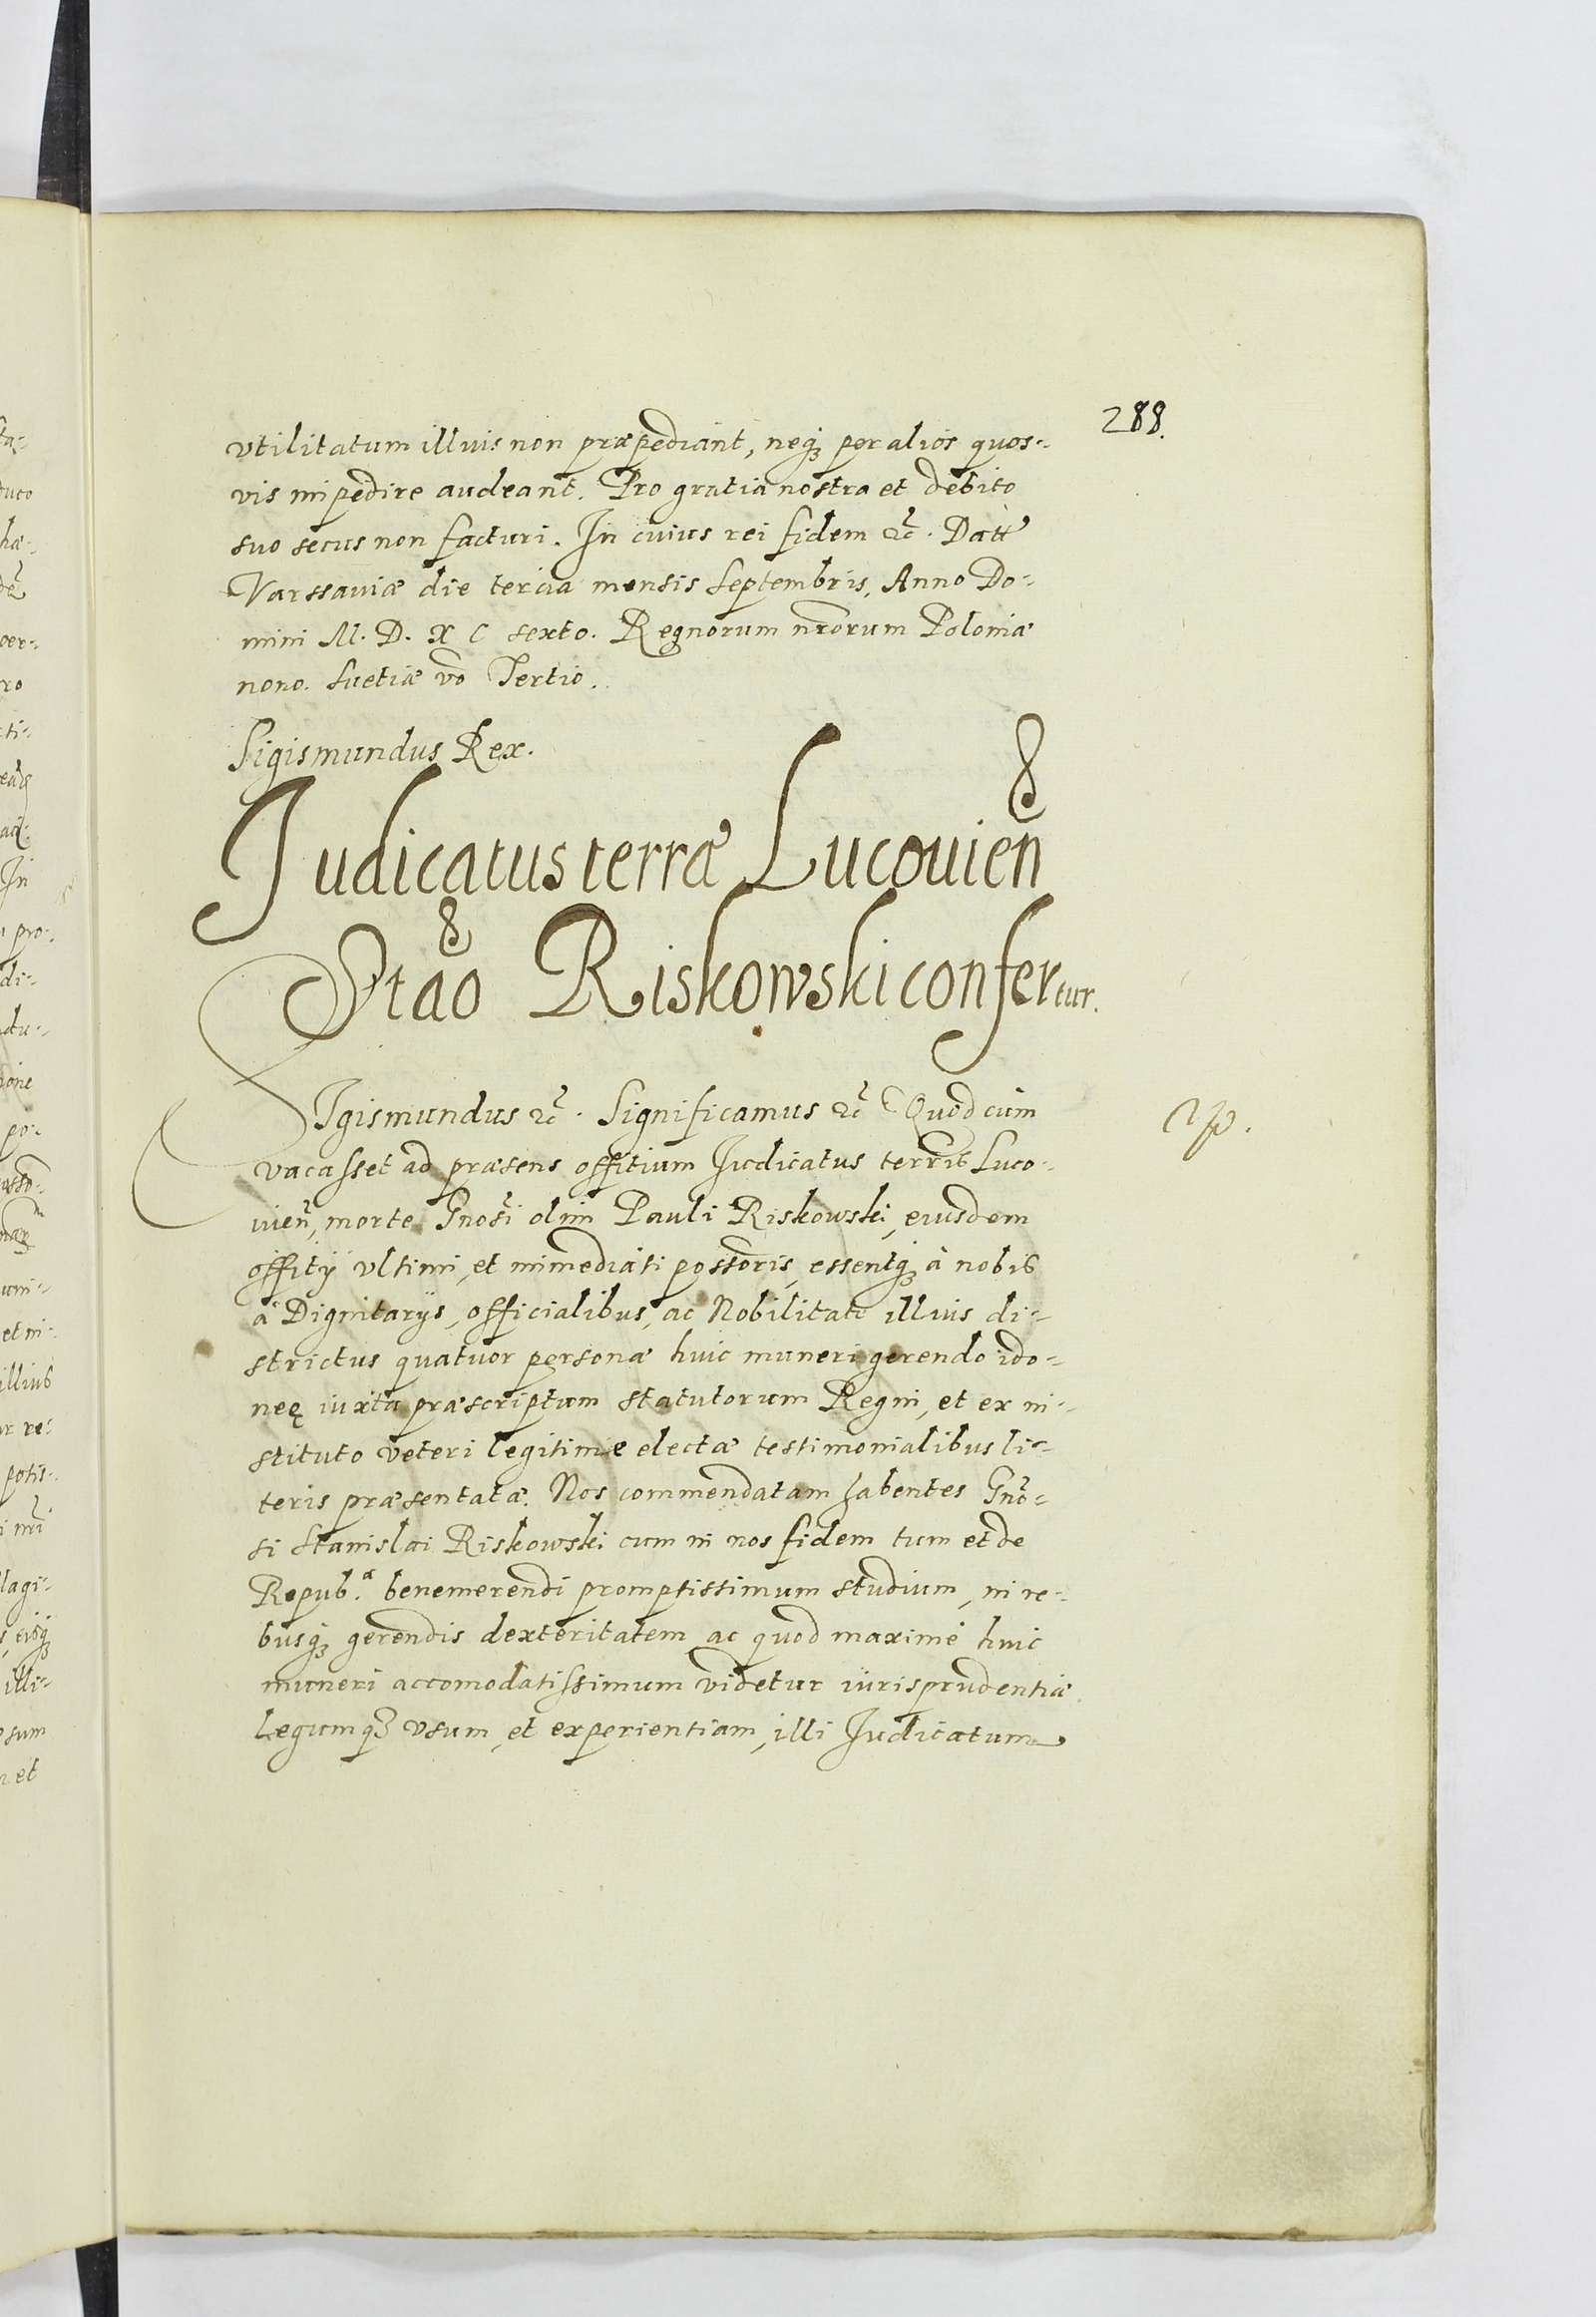 288.
vtilitatum illius non præpediant, neqꝫ per alios quos-
vis impedire audeant. Pro gratia nostra et debito
suo secus non facturi. In cuius rei fidem ꝛc̃. Datt
Varssauiæ die tercia mensis Septembris, Anno Do-
mini M. D. X C sexto. Regnorum nr̃orum Poloniæ
nono. Suetiæ vo Tertio.
Sigismundus Rex.
Judicatus terræ Lucouien̄
Stāo Riskowski confertur.
SIgismundus ꝛc̃. Significamus ꝛc̃ Quod cùm
vacasset ad præsens offitium Judicatus terris̄ Luco-
uien̄, morte Gnosi olim Pauli Riskowski, eiusdem
offitij vltimi, et immediati possoris, essentqꝫ à nobis
à Dignitarijs, officialibus, ac Nobilitate illius di-
strictus quatuor personæ huic muneri gerendo ido-
neę iuxta præscriptum statutorum Regni, et ex in-
stituto veteri legitimè electæ testimonialibus li-
teris præsentatæ. Nos commendatam habentes Gnō-
si Stanislai Riskowski cum in nos fidem tum et de
Repub.ᵃ benemerendi promptissimum studium, in re-
busqꝫ gerendis dexteritatem ac quod maximè huic
muneri accomodatissimum videtur iurisprudentiæ
Legumqꝫ vsum, et experientiam, illi Judicatum